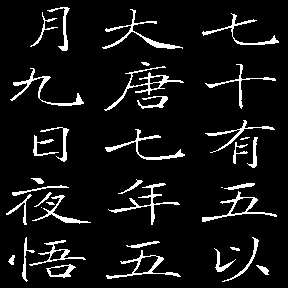 七十有五以
大唐七年五
月九日夜悟